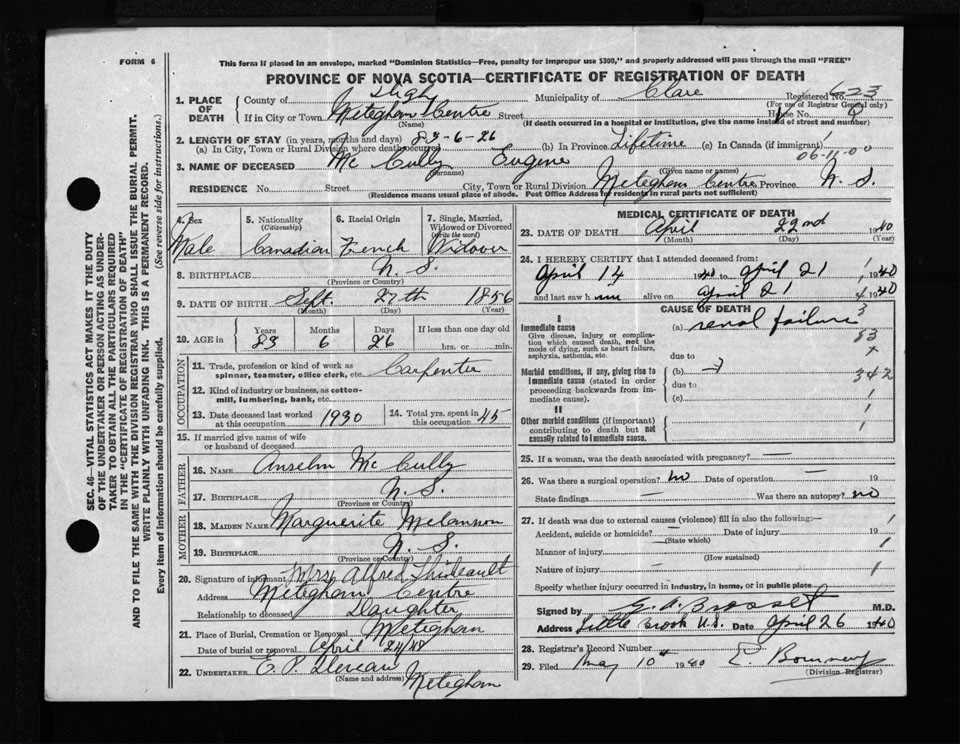 FORM 6
This form if placed in an envelope, marked "Dominion Statistics—Free, penalty for improper use $300," and properly addressed will pass through the mail "FREE"
PROVINCE OF NOVA SCOTIA—CERTIFICATE OF REGISTRATION OF DEATH
1. PLACE OF DEATH County of Digby Municipality of Clare Registered No. 623
(For use of Registrar General only)
If in City or Town Meteghan Centre Street House No.
(Name) (If death occurred in a hospital or institution, give the name instead of street and number)
2. LENGTH OF STAY (in years, months and days) 83-6-26
(a) In City, Town or Rural Division where death occurred (b) In Province Lifetime (c) In Canada (if immigrant)
3. NAME OF DECEASED Mc Cully Eugene 06-11-00
(Surname) (Given name or names)
RESIDENCE No. Street City, Town or Rural Division Meteghan Centre Province N. S.
(Residence means usual place of abode. Post Office Address for residents in rural parts not sufficient)
SEC. 46—VITAL STATISTICS ACT MAKES IT THE DUTY
OF THE UNDERTAKER OR PERSON ACTING AS UNDER-
TAKER TO OBTAIN ALL THE PARTICULARS REQUIRED
IN THE "CERTIFICATE OF REGISTRATION OF DEATH"
AND TO FILE THE SAME WITH THE DIVISION REGISTRAR WHO SHALL ISSUE THE BURIAL PERMIT.
WRITE PLAINLY WITH UNFADING INK. THIS IS A PERMANENT RECORD.
Every item of Information should be carefully supplied. (See reverse side for instructions.)
4. Sex 5. Nationality (Citizenship) 6. Racial Origin 7. Single, Married, Widowed or Divorced (write the word)
Male Canadian French Widower
8. BIRTHPLACE N. S.
(Province or Country)
9. DATE OF BIRTH Sept. 27th 1856
(Month) (Day) (Year)
10. AGE in Years Months Days If less than one day old
83 6 26 hrs. or min.
OCCUPATION
11. Trade, profession or kind of work as spinner, teamster, office clerk, etc. Carpenter
12. Kind of industry or business, as cotton-mill, lumbering, bank, etc.
13. Date deceased last worked at this occupation 1930 14. Total yrs. spent in this occupation 45
15. If married give name of wife or husband of deceased
FATHER
16. NAME Anselm Mc Cully
17. BIRTHPLACE N. S.
(Province or Country)
MOTHER
18. MAIDEN NAME Marguerite Melanson
19. BIRTHPLACE N. S.
(Province or Country)
20. Signature of informant Mrs Alfred Thibeault
Address Meteghan Centre
Relationship to deceased Daughter
21. Place of Burial, Cremation or Removal Meteghan
Date of burial or removal April 24/40
22. UNDERTAKER E. P.
(Name and address) Meteghan
MEDICAL CERTIFICATE OF DEATH
23. DATE OF DEATH April 22nd 1940
(Month) (Day) (Year)
24. I HEREBY CERTIFY that I attended deceased from:
April 14 1940 to April 21 1940
and last saw h im alive on April 21 1940
CAUSE OF DEATH
I
Immediate cause (a) renal failure
Give disease, injury or complication which caused death, not the mode of dying, such as heart failure, asphyxia, asthenia, etc.
due to
Morbid conditions, if any, giving rise to immediate cause (stated in order proceeding backwards from immediate cause). (b)
due to
(c)
342
II
Other morbid conditions (if important) contributing to death but not causally related to immediate cause.
25. If a woman, was the death associated with pregnancy? —
26. Was there a surgical operation? no Date of operation — 19
State findings — Was there an autopsy? no
27. If death was due to external causes (violence) fill in also the following:—
Accident, suicide or homicide? — Date of injury 19
(State which)
Manner of injury
(How sustained)
Nature of injury —
Specify whether injury occurred in industry, in home, or in public place
Signed by M.D.
Address Little Brook N.S. Date April 26 1940
28. Registrar's Record Number
29. Filed May 10th 1940
(Division Registrar)